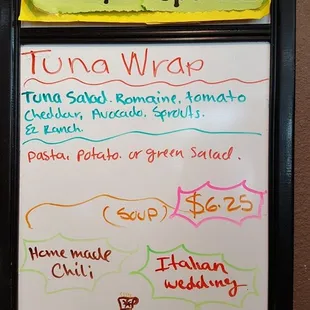 Tuna Wrap
Tuna Salad. Romaine. tomato
Cheddar, Avocado, Sprouts.
& Ranch
pasta, potato. or green Salad.
(Soup) $6.25
Homemade
Chili
Italian
wedding